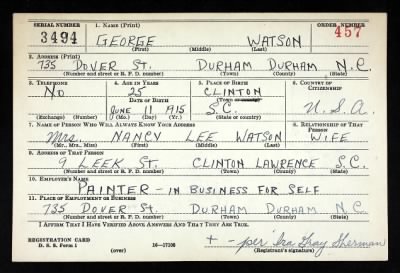 SERIAL NUMBER 1. NAME (Print) ORDER NUMBER
3494 GEORGE WATSON 457
(First) (Middle) (Last)
2. ADDRESS (Print)
735 DOVER ST. DURHAM DURHAM N.C
(Number and street or R. F. D. number) (Town) (County) (State)
3. TELEPHONE 4. AGE IN YEARS 5. PLACE OF BIRTH 6. COUNTRY OF CITIZENSHIP
NO 25 CLINTON
DATE OF BIRTH (Town or county)
JUNE 11 1915 S.C. U.S.A.
(Exchange) (Number) (Mo.) (Day) (Yr.) (State or country)
7. NAME OF PERSON WHO WILL ALWAYS KNOW YOUR ADDRESS 8. RELATIONSHIP OF THAT PERSON
Mrs. NANCY LEE WATSON WIFE
(Mr., Mrs., Miss) (First) (Middle) (Last)
9. ADDRESS OF THAT PERSON
9 LEEK ST. CLINTON LAWRENCE S.C.
(Number and street or R. F. D. number) (Town) (County) (State)
10. EMPLOYER'S NAME
PAINTER - IN BUSINESS FOR SELF
11. PLACE OF EMPLOYMENT OR BUSINESS
735 DOVER ST. DURHAM DURHAM N.C.
(Number and street or R. F. D. number) (Town) (County) (State)
I AFFIRM THAT I HAVE VERIFIED ABOVE ANSWERS AND THAT THEY ARE TRUE.
REGISTRATION CARD + - per Ira Gray Sherman
D. S. S. Form 1 (over) 16-17105 (Registrant's signature)